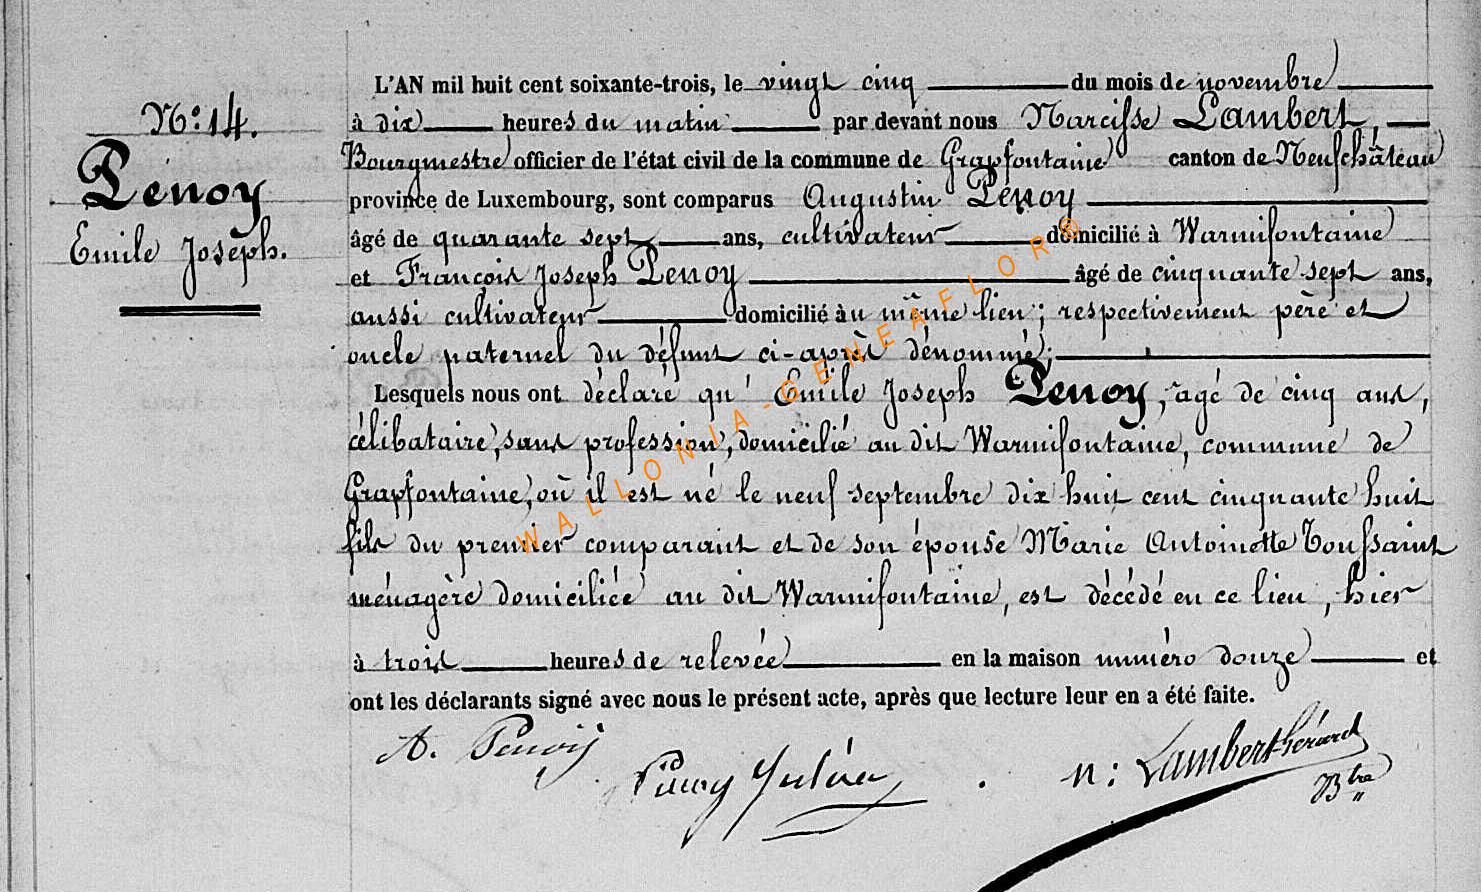 N°: 14.
Penoy
Emile Joseph.
L'AN mil huit cent soixante-trois, le vingt cinq du mois de novembre
à dix heures du matin par devant nous Narcisse Lambert,
Bourgmestre officier de l'état civil de la commune de Grapfontaine canton de Neufchâteau
province de Luxembourg, sont comparus Augustin Penoy
âgé de quarante sept ans, cultivateur domicilié à Warmifontaine
et François Joseph Penoy âgé de cinquante sept ans,
aussi cultivateur domicilié àu même lieu; respectivement père et
oncle paternel du défunt ci-après dénommé;
Lesquels nous ont déclaré qu'Emile Joseph Penoy, agé de cinq ans,
célibataire, sans profession, domicilié au dit Warmifontaine, commune de
Grapfontaine, où il est né le neuf septembre dix huit cent cinquante huit
fils du premier comparant et de son épouse Marie Antoinette Toussaint
ménagère domiciliée au dit Warmifontaine, est décédé en ce lieu, hier
à trois heures de relevée en la maison numéro douze et
ont les déclarants signé avec nous le présent acte, après que lecture leur en a été faite.
A. Penoy
Penoy
N: Lambert-Gérard
Btre
WALLONIA-GENEAFLOR®